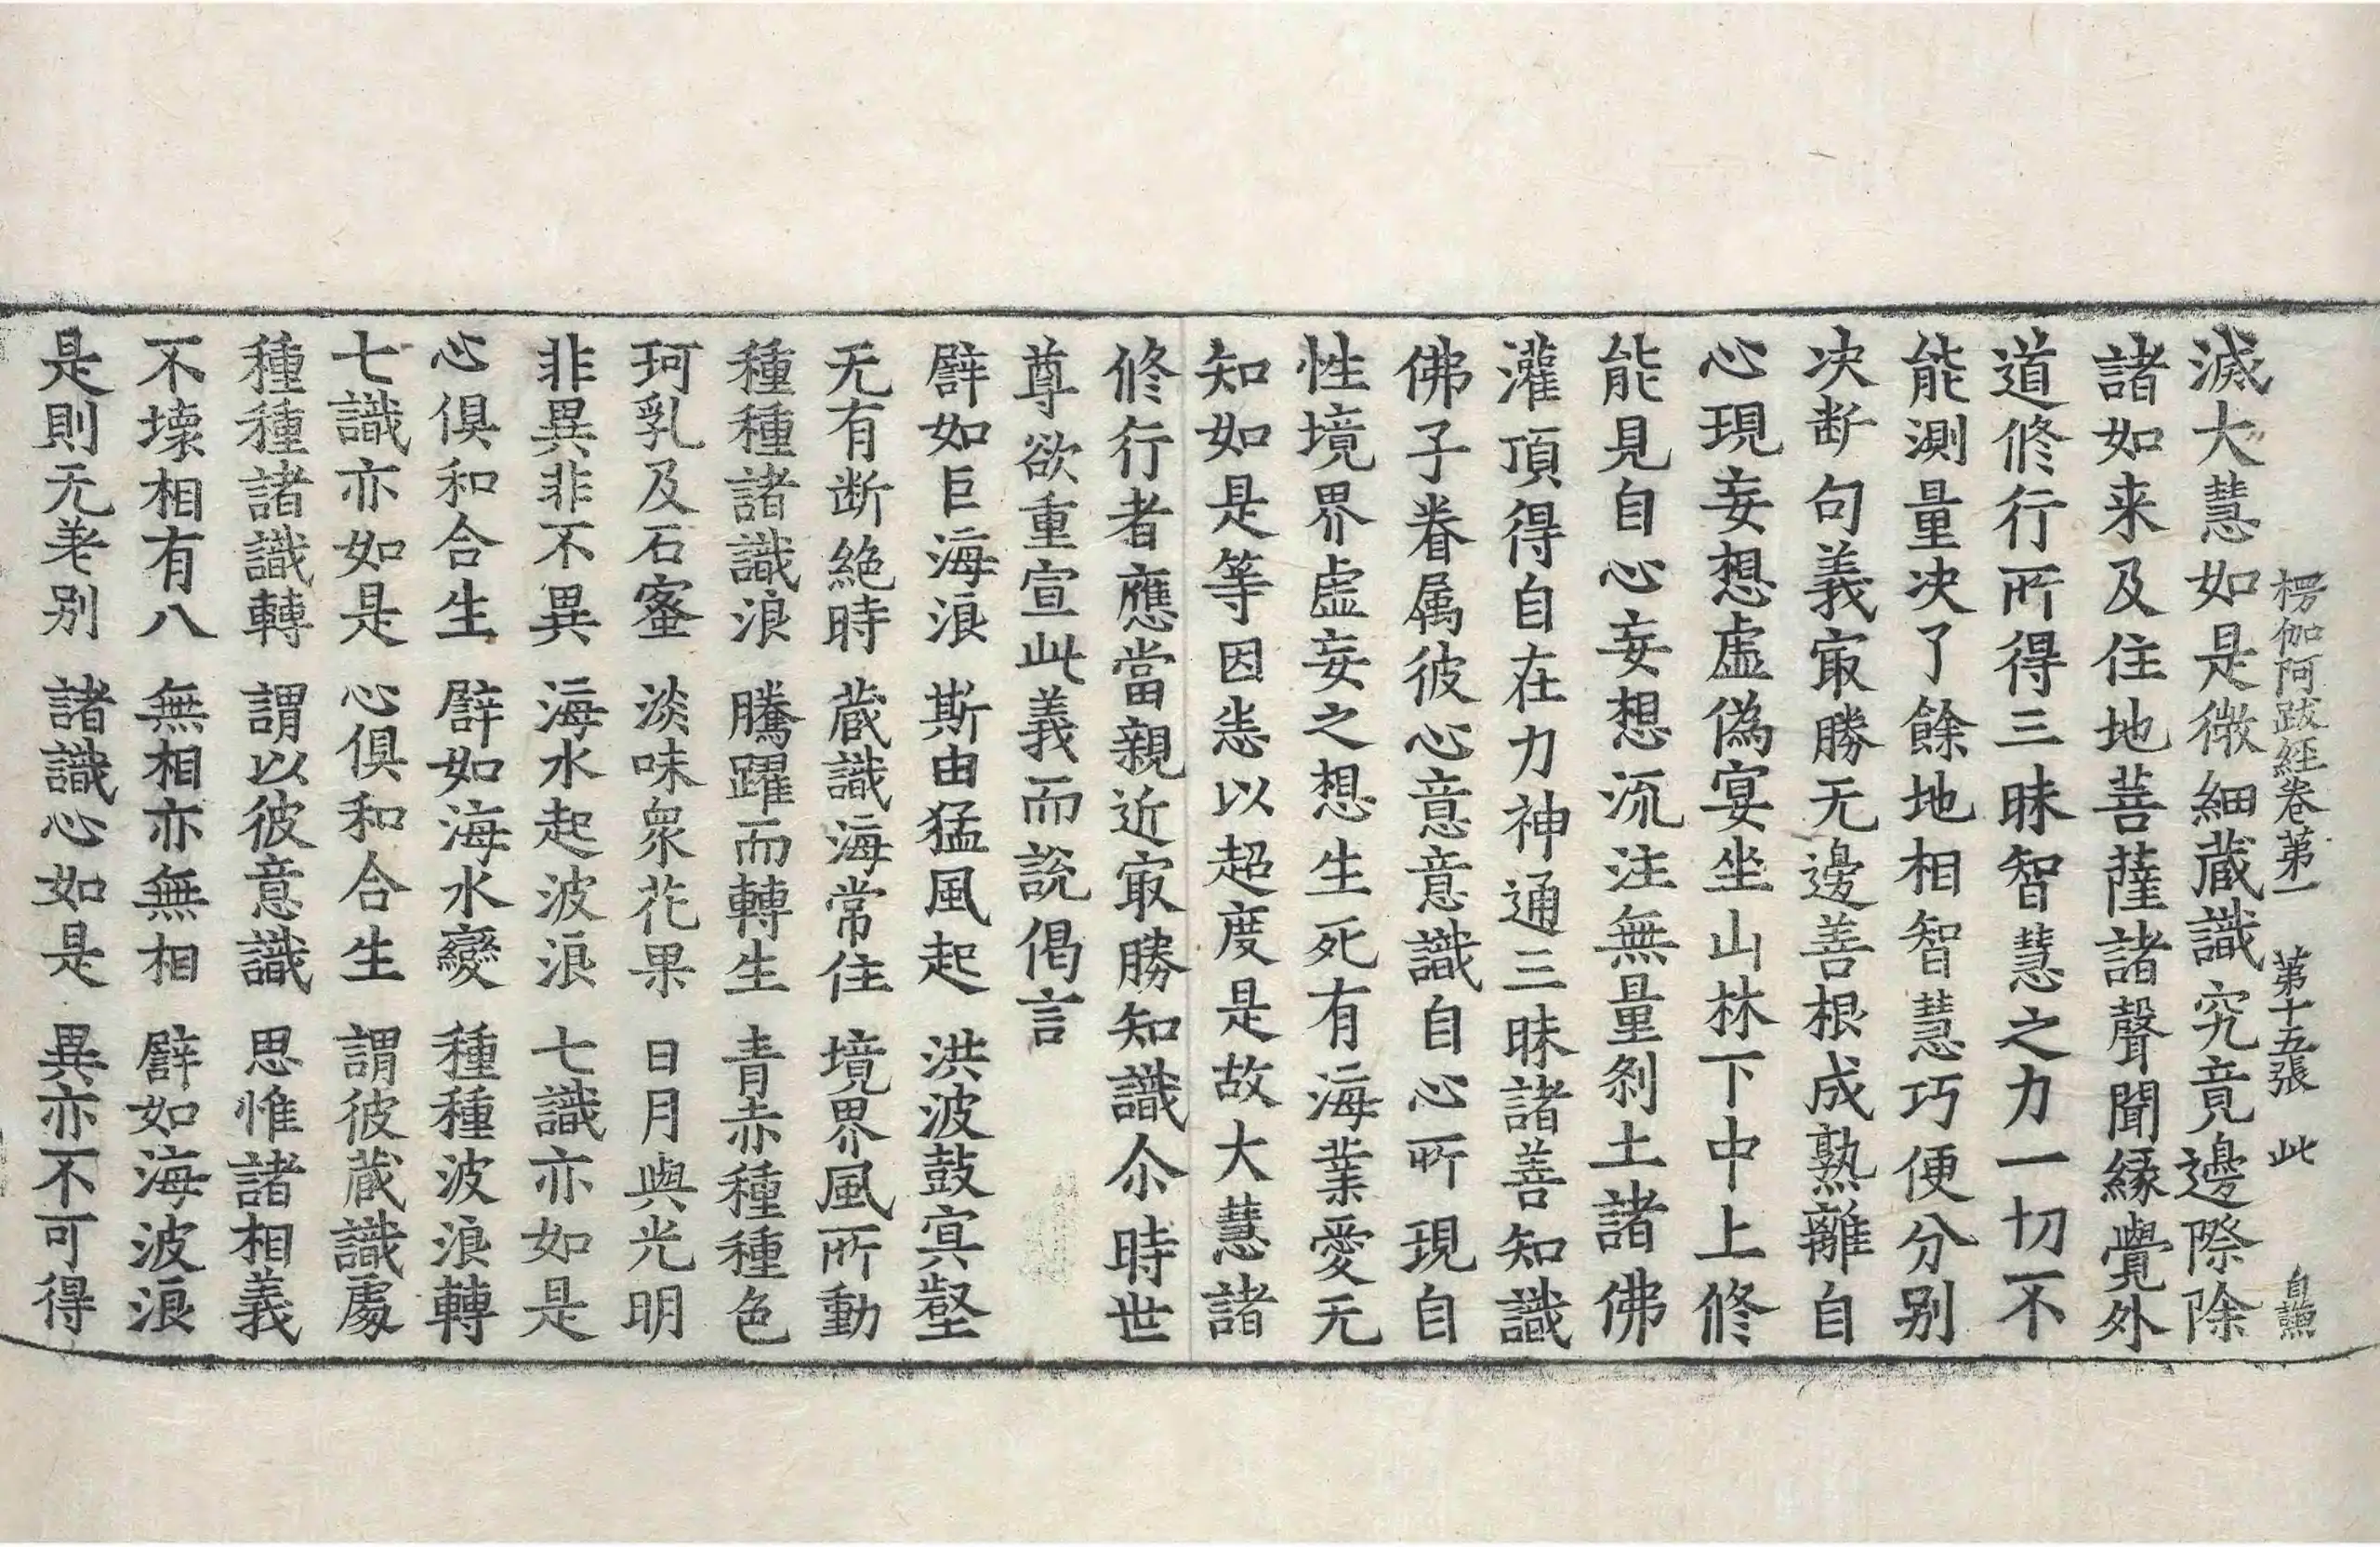 楞伽阿跋経卷苐一 苐十五張 此 自謙
滅大慧如是微細蔵識究竟邊際除
諸如来及住地菩薩諸聲聞縁覺外
道修行所得三昧智慧之力一切不
能測量决了餘地相智慧巧便分别
决断句義㝡勝无邊善根成熟離自
心現妄想虛偽宴坐山林下中上修
能見自心妄想流注無量刹土諸佛
灌頂得自在力神通三昧諸善知識
佛子眷属彼心意意識自心所現自
性境界虛妄之想生死有海業愛无
知如是等因悉以超度是故大慧諸
修行者應當親近㝡勝知識尒時世
尊欲重宣此義而說偈言
譬如巨海浪 斯由猛風起 洪波鼓㝠壑
无有断絶時 蔵識海常住 境界風所動
種種諸識浪 騰躍而轉生 青赤種種色
珂乳及石蜜 淡味衆花果 日月與光明
非異非不異 海水起波浪 七識亦如是
心俱和合生 譬如海水變 種種波浪轉
七識亦如是 心俱和合生 謂彼蔵識處
種種諸識轉 謂以彼意識 思惟諸相義
不壞相有八 無相亦無相 譬如海波浪
是則无差别 諸識心如是 異亦不可得